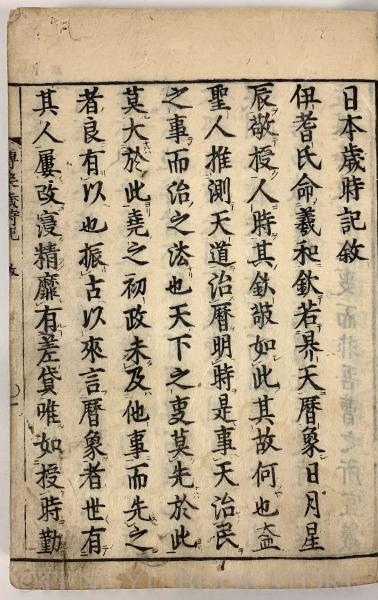 日本歳時記敘
伊耆氏命羲和欽若昦天曆象日月星
辰敬授人時其欽敬如此其故何也蓋
聖人推測天道治曆明時是事天治民
之事而治之法也天下之叓莫先於此
莫大於此堯之初政未及他事而先之
者良有以也振古以來言曆象者世有
其人屢改寖精靡有差貸唯如授時勤